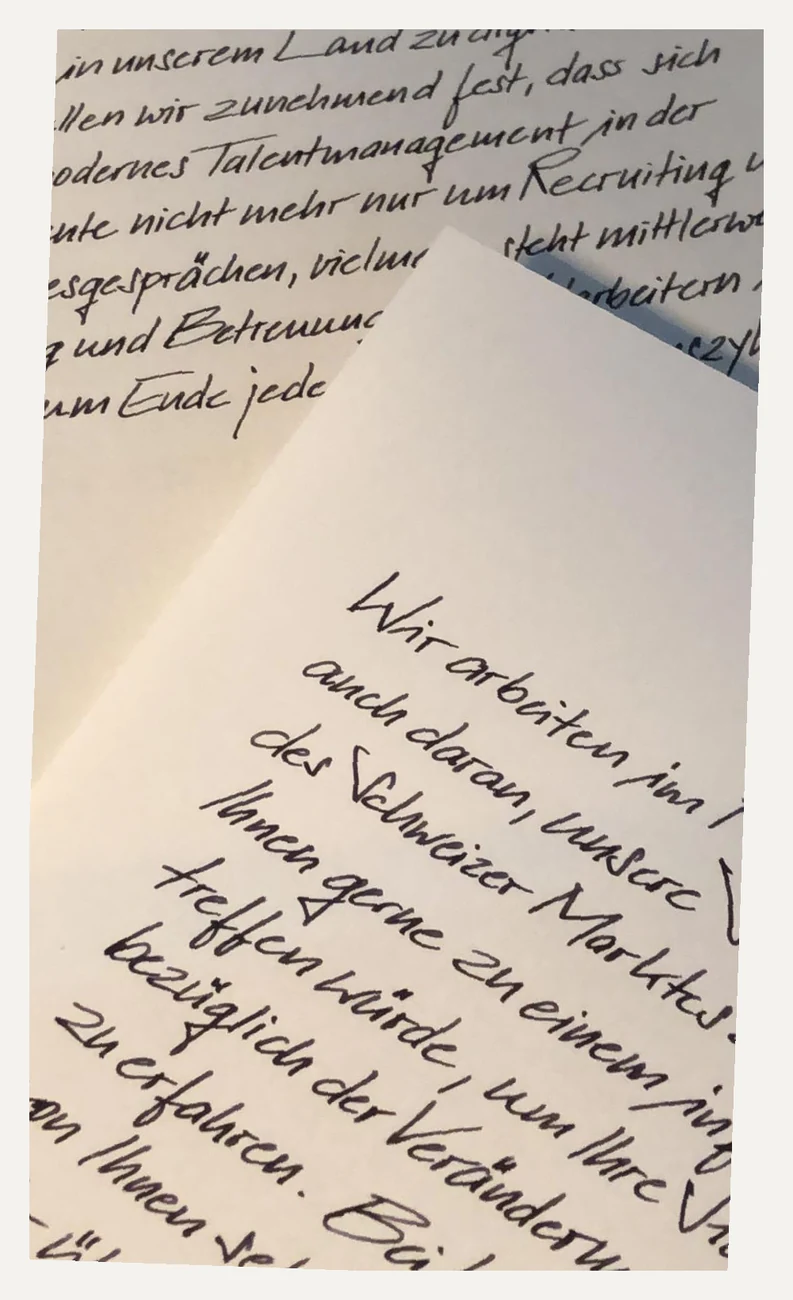 in unserem Land zu
wir zunehmend fest, dass sich
Talentmanagement in der
nicht mehr nur um Recruiting
steht mittlerwe
und Betreuung
um Ende jede
Wir arbeiten im
auch daran, unsere
des Schweizer Marktes
Ihnen gerne zu einem
treffen würde, um Ihre
bezüglich der Veränderun
zu erfahren. Bei
on Ihnen